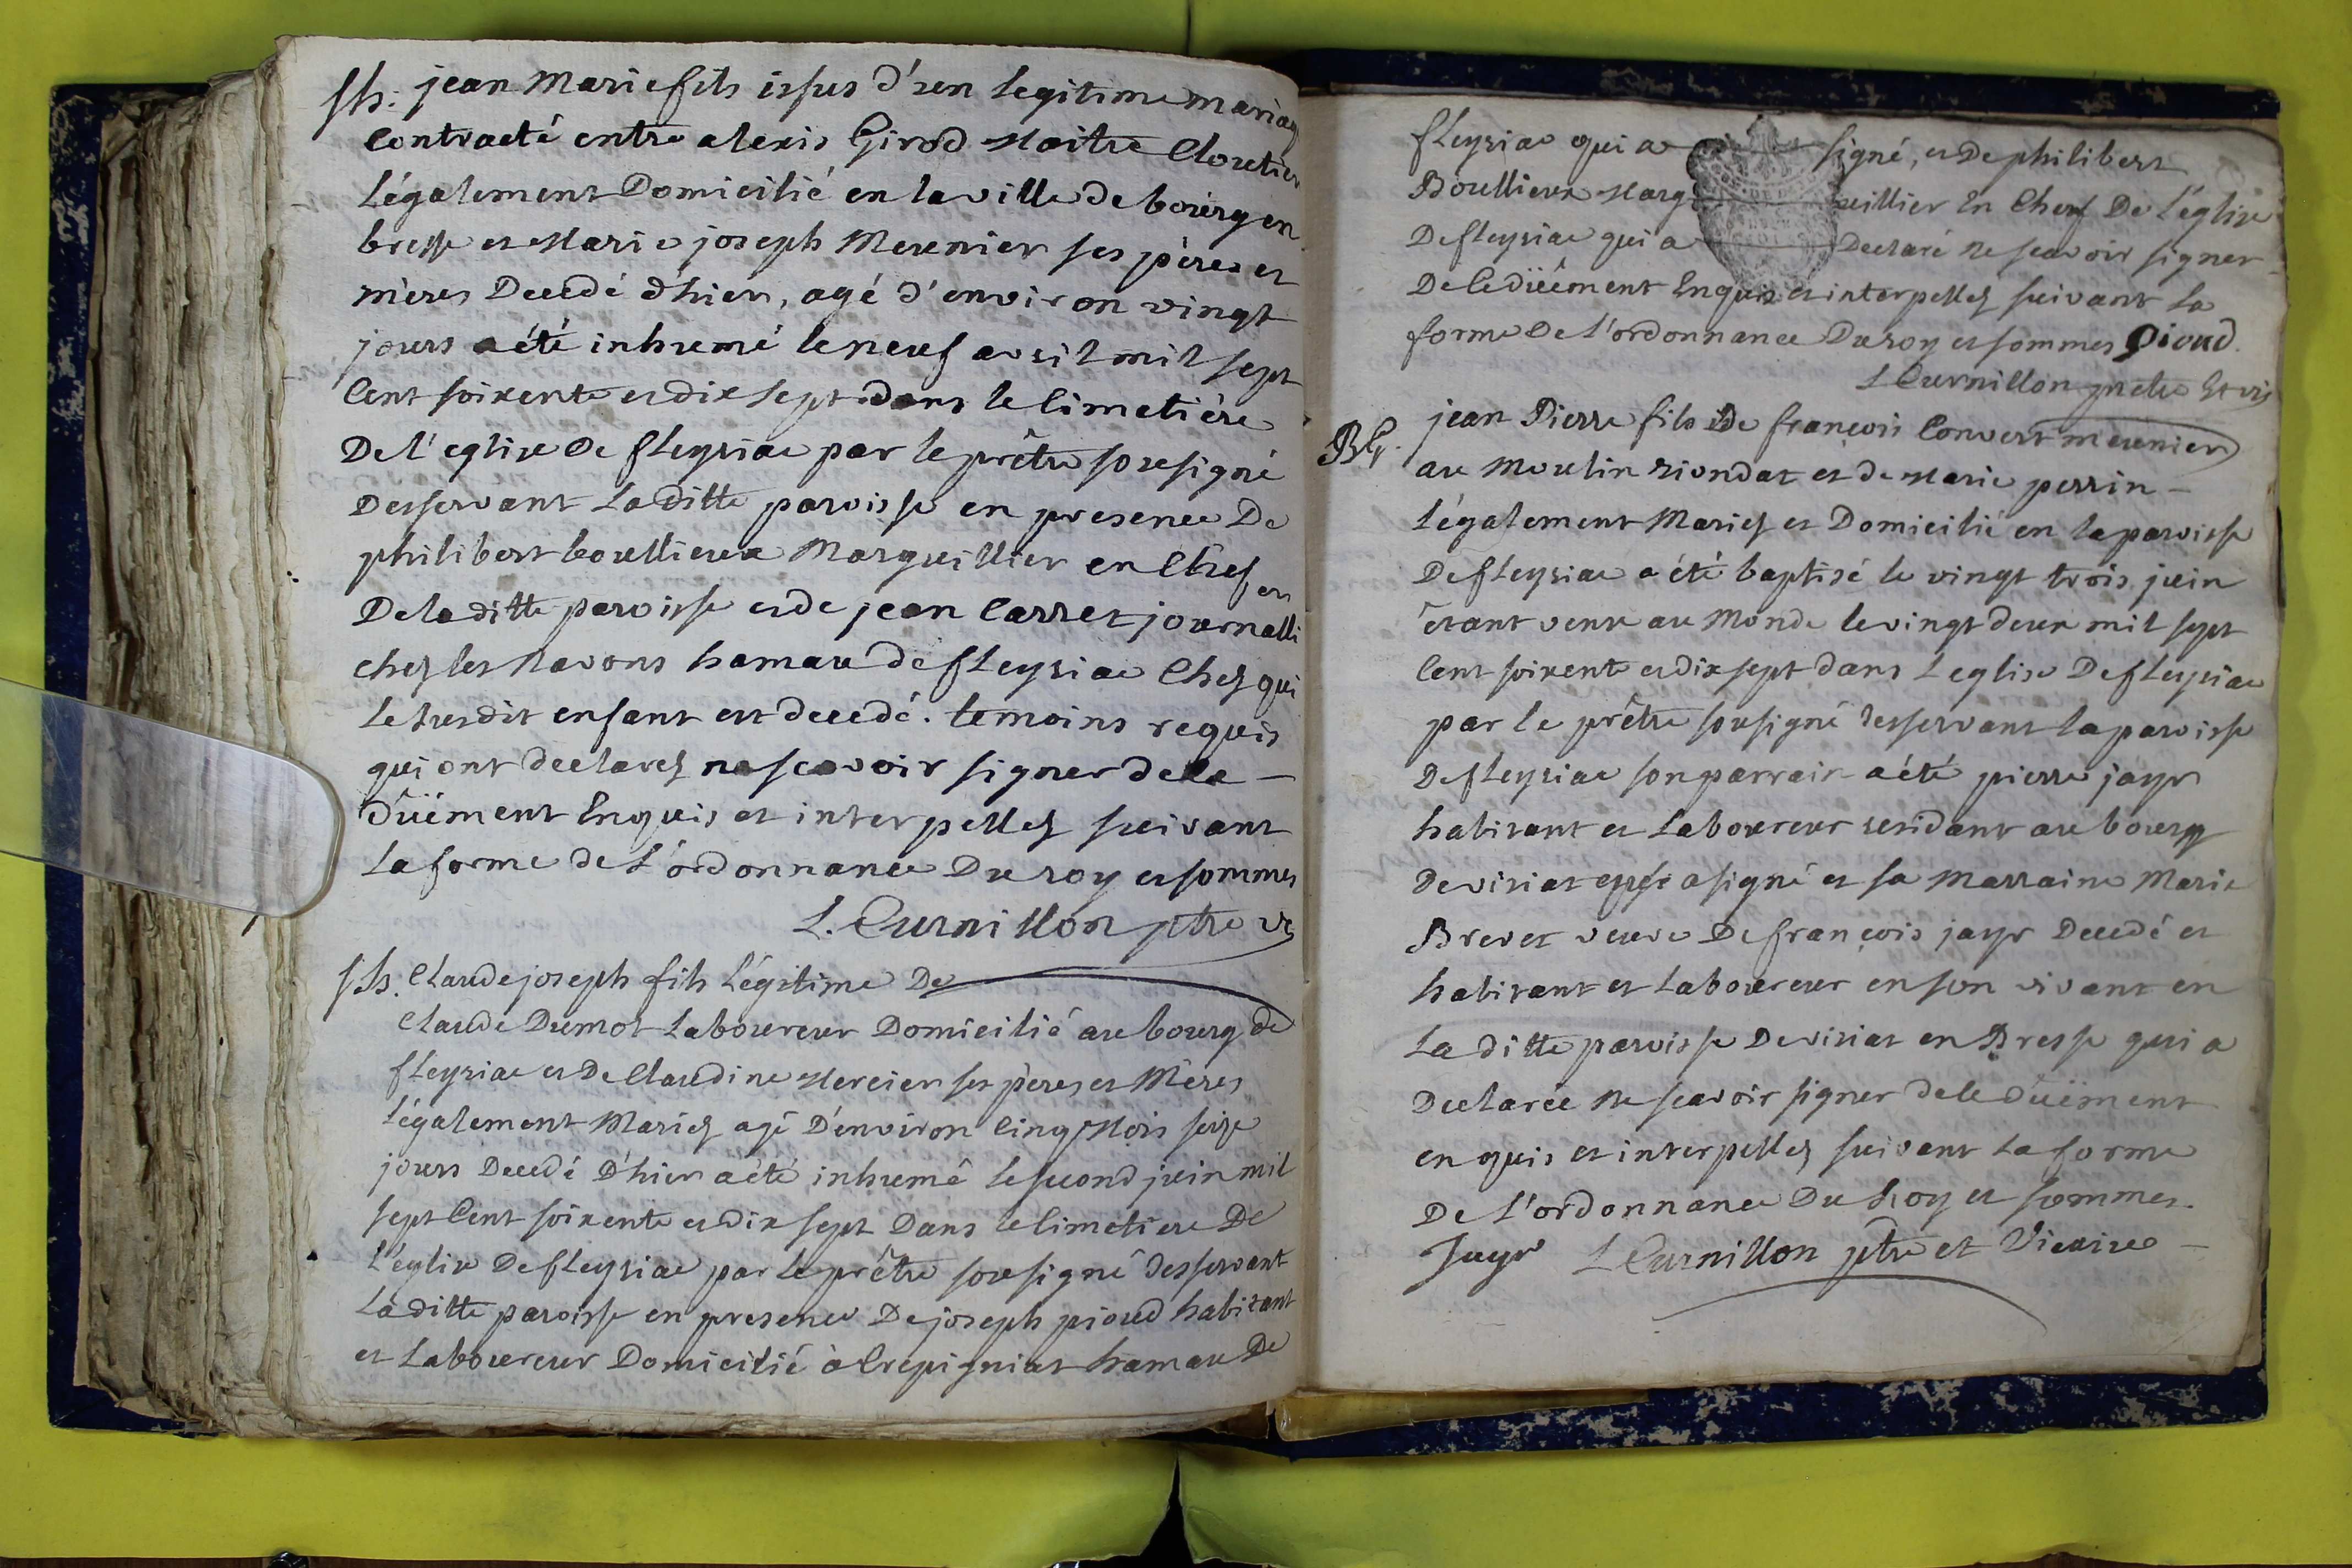 Sh. jean Marie fils issus d'un legitime mariag
Contracté entre alexis Girod Maitre Cloutier
légalement Domicilié en la ville de bourg en
bresse et Marie joseph Meunier ses pères et
mères Decedé d'hier, agé d'environ vingt
jours a été inhumé le neuf avril mil sept
Cent soixente et dix sept dans le Cimetière
De l'eglise De fleyriac par le prêtre sousigné
Desservant La ditte paroisse en presence De
philibert boullieux Marguillier en Chef en
De la ditte paroisse et de jean Carret journalli
chez les Navons hamau de fleyriac Chez qui
le susdit enfant est decedé. temoins requis
qui ont declarez ne scavoir signer de ce
düëment Enquis et interpellez suivant
La forme de L'ordonnance Du roy et sommes
L. Curnillon ptre v
Sh. Claude joseph fils légitime De
Claude Dumot Laboureur Domicilié au bourg de
fleyriac et De Claudine Mercier ses pères et Mères
légalement Mariez agé D'environ Cinq Mois seize
jours Decedé D'hier a été inhumé le second juin mil
sept Cent soixente et dix sept Dans le Cimetiere De
L'église De fleyriac par le prêtre sousigné desservant
La ditte paroisse en presence De joseph pioud habitant
et Laboureur Domicilié à Crepigniat hamau De
fleyriac qui a signé, et De philibert
Boullieux Marguillier En Chef De L'église
De fleyriac qui a Declaré ne scavoir signer
De ce düëment Enquis et interpellez suivant La
forme De L'ordonnance Du roy et sommes Pioud.
L Curnillon prêtre Et vic
BG. jean Pierre fils De françois Convert meunier
au Moulin riondat et de Marie perrin
légalement Mariez et Domicilié en la paroisse
De fleyriac a été baptisé le vingt trois juin
êtant venu au Monde le vingt deux mil sept
Cent soixente et dix sept dans L'eglise De fleyriac
par le prêtre sousigné desservant la paroisse
De fleyriac son parrain a été pierre jayr
habitant et Laboureur residant au bourg
De viriat a signé et sa Marraine Marie
Brevet veuve De françois jayr Decedé et
habitant et Laboureur en son vivant en
La ditte paroisse De viriat en Bresse qui a
Declarée ne scavoir signer de ce düëment
enquis et interpellez suivant La forme
De L'ordonnance Du Roy et sommes.
Jayr L Curnillon ptre et Vicaire